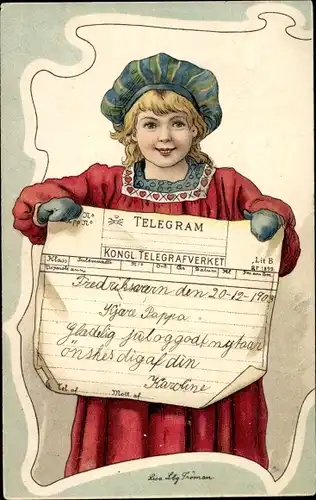 TELEGRAM
KONGL. TELEGRAFVERKET
Lit B
Klass
Fredriksværn den 20-12-1903
Kjære Pappa.
Glædelig jul og godt nytaar
önskes dig af din
Karoline
Tel af
Mott af